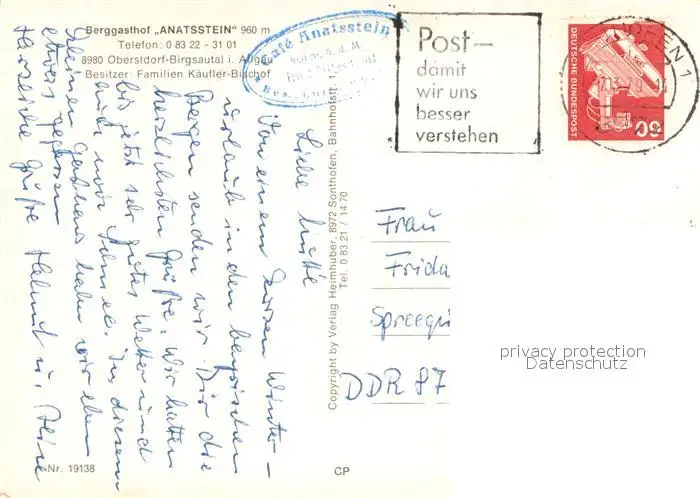 Berggasthof „ANATSSTEIN" 960 m
Telefon: 0 83 22 - 31 01
8980 Oberstdorf-Birgsautal i. Allgäu
Besitzer: Familien Käufler-Bischof
Café Anatsstein
Post-
damit
wir uns
besser
verstehen
DEUTSCHE BUNDESPOST
50
Liebe
Von einem kurzen Winter-
urlaub in den bayrischen
Bergen senden wir Dir die
herzlichsten Grüße. Wir hatten
bis jetzt sehr gutes Wetter und
auch Schnee. In diesem
kleinen Gasthaus haben wir eben
etwas gegessen
Herzliche Grüße Helmut u.
Copyright by Verlag Heimhuber, 8972 Sonthofen, Bahnhofstr. 1
Tel. 0 83 21 / 14 70
Frau
Frida
DDR 87
privacy protection
Datenschutz
Nr. 19138
CP